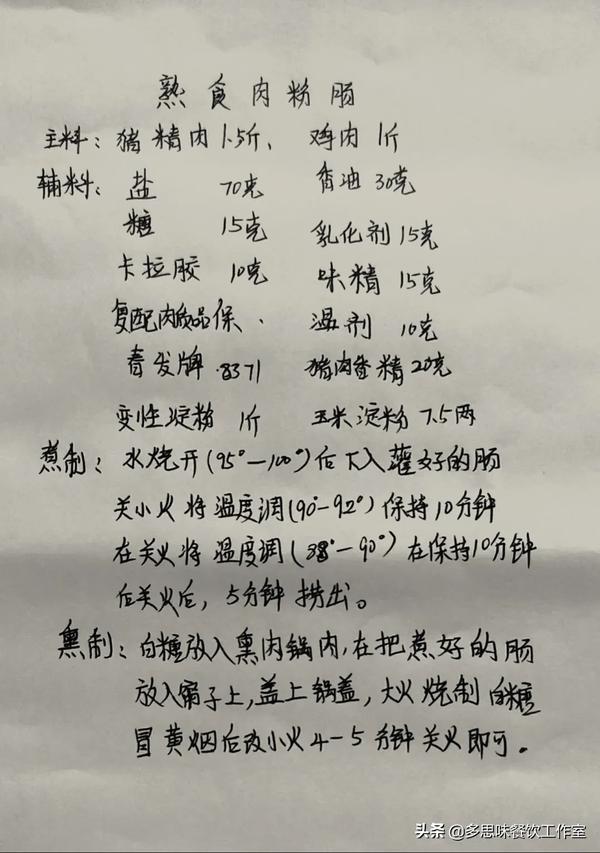 熟食肉粉肠
主料：猪精肉1.5斤、 鸡肉1斤
辅料：盐 70克 香油30克
糖 15克 乳化剂15克
卡拉胶 10克 味精 15克
复配肉成品保、湿剂 10克
春发牌.8371 猪肉香精20克
变性淀粉 1斤 玉米淀粉 7.5两
煮制：水烧开(95°—100°)后下入灌好的肠
关小火将温度调(90°-92°)保持10分钟
在关火将温度调(88°-90°)在保持10分钟
后关火后，5分钟捞出。
熏制：白糖放入熏肉锅内，在把煮好的肠
放入帘子上，盖上锅盖，大火烧制白糖
冒黄烟后改小火4-5分钟关火即可。
头条 @多思味餐饮工作室